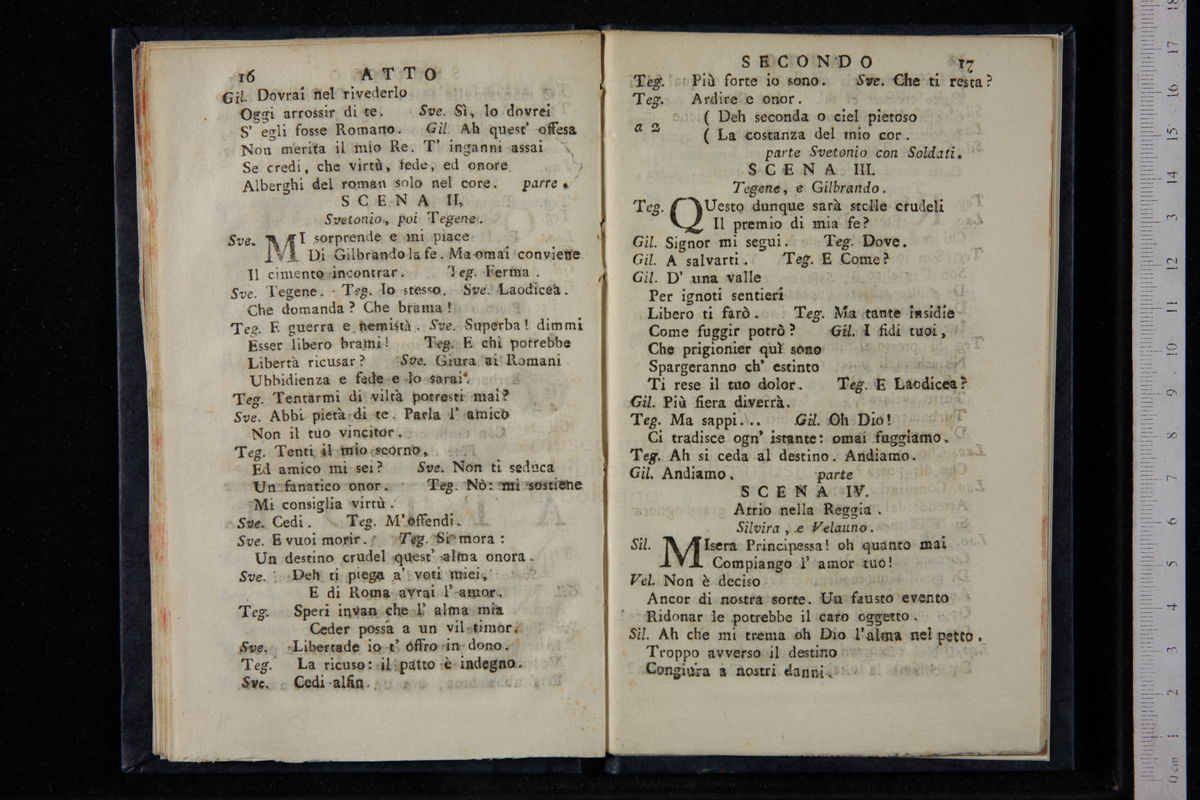 16 ATTO
Gil. Dovrai nel rivederlo
Oggi arrossir di te. Sve. Sì, lo dovrei
S' egli fosse Romano. Gil. Ah quest' offesa
Non merita il mio Re. T' inganni assai
Se credi, che virtù, fede, ed onore
Alberghi del roman solo nel core. parte.
SCENA II,
Svetonio, poi Tegene.
Sve. MI sorprende e mi piace
Di Gilbrando la fe. Ma omai conviene
Il cimento incontrar. Teg. Ferma.
Sve. Tegene. Teg. Io stesso. Sve. Laodicea.
Che domanda? Che brama!
Teg. E guerra e nemistà. Sve. Superba! dimmi
Esser libero brami! Teg. E chi potrebbe
Libertà ricusar? Sve. Giura ai Romani
Ubbidienza e fede e lo sarai.
Teg. Tentarmi di viltà potresti mai?
Sve. Abbi pietà di te. Parla l' amico
Non il tuo vincitor.
Teg. Tenti il mio scorno,
Ed amico mi sei? Sve. Non ti seduca
Un fanatico onor. Teg. Nò: mi sostiene
Mi consiglia virtù.
Sve. Cedi. Teg. M' offendi.
Sve. E vuoi morir. Teg. Si mora:
Un destino crudel quest' alma onora.
Sve. Deh ti piega a' voti miei,
E di Roma avrai l' amor.
Teg. Speri invan che l' alma mia
Ceder possa a un vil timor.
Sve. Libertade io t' offro in dono.
Teg. La ricuso: il patto è indegno.
Sve. Cedi alfin.
SECONDO 17
Teg. Più forte io sono. Sve. Che ti resta?
Teg. Ardire e onor.
a 2 ( Deh seconda o ciel pietoso
( La costanza del mio cor.
parte Svetonio con Soldati.
SCENA III.
Tegene, e Gilbrando.
Teg. QUesto dunque sarà stelle crudeli
Il premio di mia fe?
Gil. Signor mi segui. Teg. Dove.
Gil. A salvarti. Teg. E Come?
Gil. D' una valle
Per ignoti sentieri
Libero ti farò. Teg. Ma tante insidie
Come fuggir potrò? Gil. I fidi tuoi,
Che prigionier quì sono
Spargeranno ch' estinto
Ti rese il tuo dolor. Teg. E Laodicea?
Gil. Più fiera diverrà.
Teg. Ma sappi... Gil. Oh Dio!
Ci tradisce ogn' istante: omai fuggiamo.
Teg. Ah si ceda al destino. Andiamo.
Gil. Andiamo. parte
SCENA IV.
Atrio nella Reggia.
Silvira, e Velauno.
Sil. MIsera Principessa! oh quanto mai
Compiango l' amor tuo!
Vel. Non è deciso
Ancor di nostra sorte. Un fausto evento
Ridonar le potrebbe il caro oggetto.
Sil. Ah che mi trema oh Dio l'alma nel petto.
Troppo avverso il destino
Congiura a nostri danni.